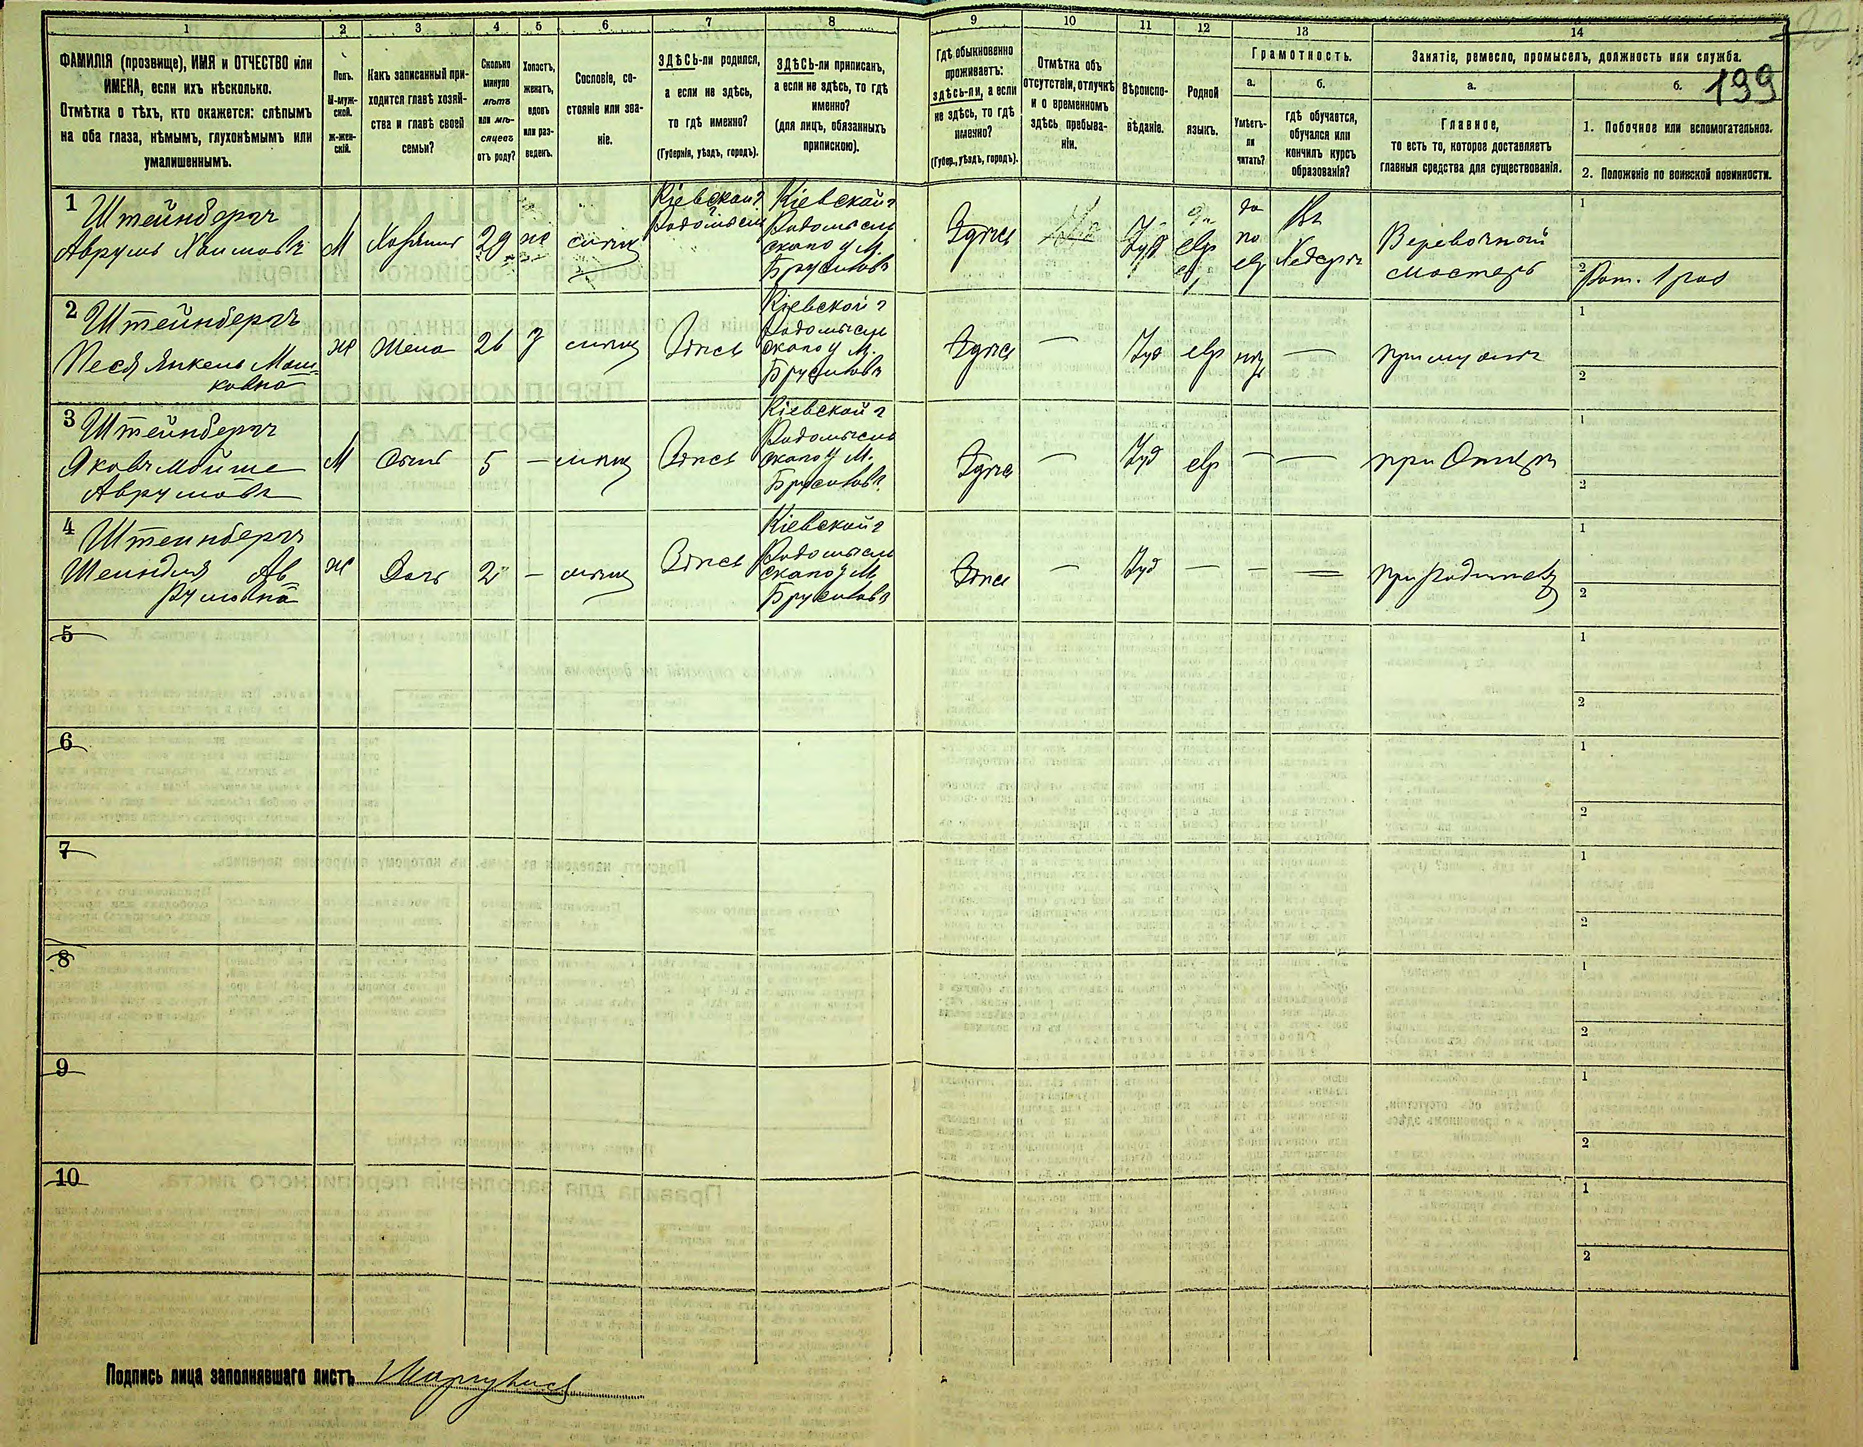 1 2 3 4 5 6 7 8 9 10 11 12 13 14
199
ФАМИЛІЯ (прозвище), ИМЯ и ОТЧЕСТВО или
ИМЕНА, если ихъ нѣсколько.
Отмѣтка о тѣхъ, кто окажется: слѣпымъ
на оба глаза, нѣмымъ, глухонѣмымъ или
умалишеннымъ.
Полъ.
М-муж-
ской.
Ж-жен-
скій.
Какъ записанный при-
ходится главѣ хозяй-
ства и главѣ своей
семьи?
Сколько
минуло
лѣтъ
или мѣ-
сяцевъ
отъ роду?
Холостъ,
женатъ,
вдовъ
или раз-
веденъ.
Сословіе, со-
стояніе или зва-
ніе.
ЗДѢСЬ-ли родился,
а если не здѣсь,
то гдѣ именно?
(Губернія, уѣздъ, городъ).
ЗДѢСЬ-ли приписанъ,
а если не здѣсь, то гдѣ
именно?
(для лицъ, обязанныхъ
припискою).
Гдѣ обыкновенно
проживаетъ:
здѣсь-ли, а если
не здѣсь, то гдѣ
именно?
(Губер., уѣздъ, городъ).
Отмѣтка объ
отсутствіи, отлучкѣ
и о временномъ
здѣсь пребыва-
ніи.
Вѣроиспо-
вѣданіе.
Родной
языкъ.
Грамотность.
а.
Умѣетъ-
ли
читать?
б.
гдѣ обучается,
обучался или
кончилъ курсъ
образованія?
Занятіе, ремесло, промыселъ, должность или служба.
а.
Главное,
то есть то, которое доставляетъ
главныя средства для существованія.
б.
1. Побочное или вспомогательное.
2. Положеніе по воинской повинности.
1
Штейнбергъ
Аврумъ Хаимовъ
М
29
Кіевской г
Радомысл
Кіевской г
Радомысль
скаго у М.
Брусиловъ
Здѣсь
Іуд
евр
да
по
евр
Въ
Хедеръ
Веревочный
мастеръ
1
2
Рат. 1 раз
2
Штейнбергъ
Песя Янкель Мош-
ковна
ж
Жена
26
З
Здѣсь
Кіевской г
Радомысль
скаго у М.
Брусиловъ
Здѣсь
—
Іуд
евр
—
при мужѣ
1
2
3
Штейнбергъ
Яковъ Мойше
Аврумовъ
М
Сынъ
5
—
Здѣсь
Кіевской г
Радомысль
скаго у М.
Брусиловъ
Здѣсь
—
Іуд
евр
—
—
при Отцѣ
1
2
4
Штейнбергъ
Шейндля Ав
румовна
ж
Дочь
2
—
Здѣсь
Кіевской г
Радомысль
скаго у М
Брусиловъ
Здѣсь
—
Іуд
—
—
—
при Родителяхъ
1
2
5
1
2
6
1
2
7
1
2
8
1
2
9
1
2
10
1
2
Подпись лица заполнявшаго листъ